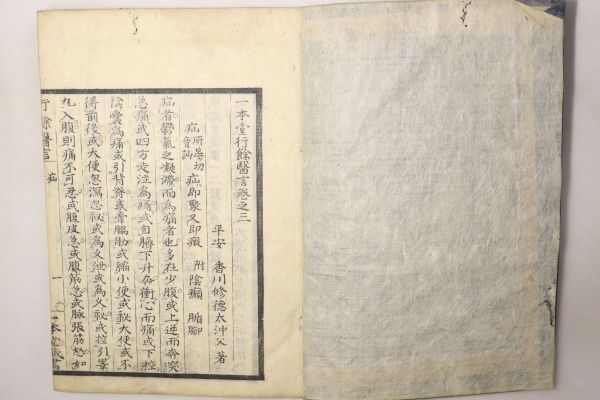 一本堂行餘醫言卷之三
平安 香川修德太沖父 著
疝 所晏切 音訕 疝即聚又即瘕 附陰㿗 𤸷腳
疝者鬱氣之凝滯而為痛者也多在少腹或上逆而奔突
急痛或四方走注為痛或自臍下升奔衝心而痛或下控
陰囊為痛或引背脊或牽脇肋或縮小便或秘大便或不
得前後或大便忽瀉忽秘或為久泄或為久秘或控引睪
丸入腹則痛不可忍或腹皮急或腹筋急或脉張筋怒如
行餘醫言 疝 一 一本堂藏